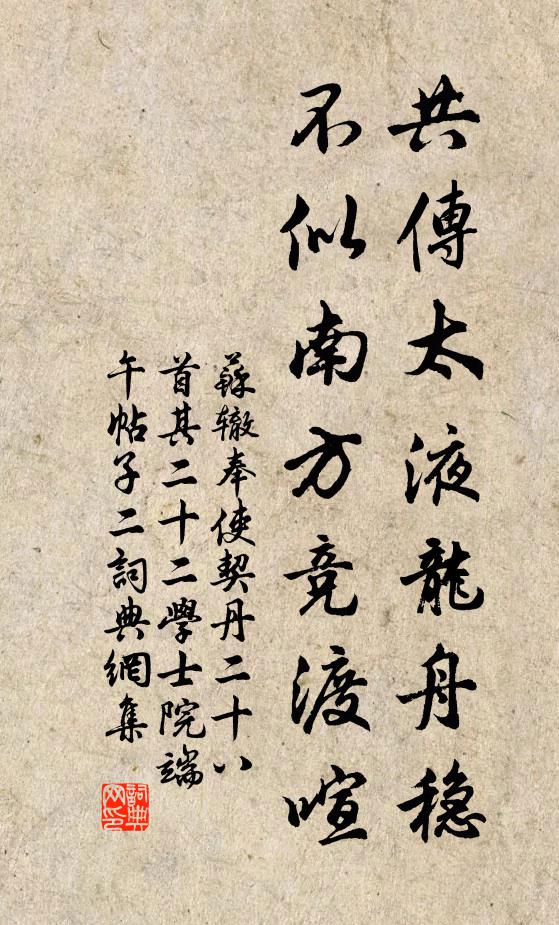 共傳太液龍舟穩
不似南方竞渡喧
蘇辙奉使契丹二十八
首其二十二學士院端
午帖子二詞典網集
詞典
网印